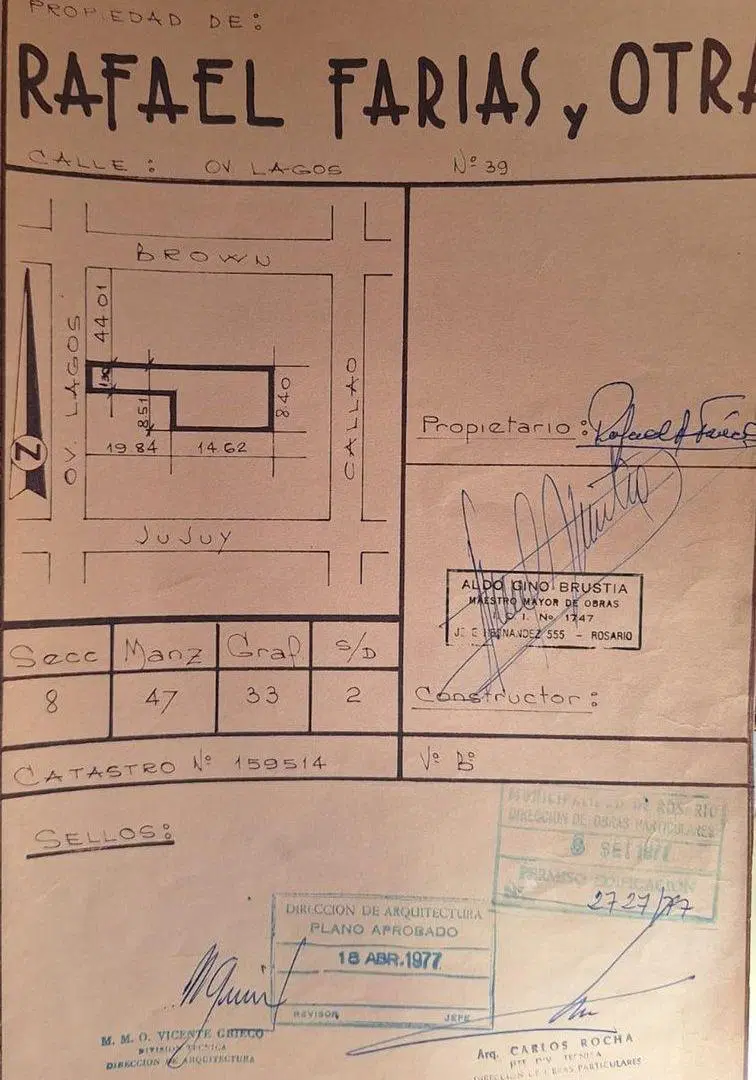 PROPIEDAD DE:
RAFAEL FARIAS, y OTRA
CALLE: OV LAGOS Nº 39
BROWN
44.01
OV. LAGOS
8.51
8.40
CALLAO
19 84
14 62
N
JUJUY
Propietario:
ALDO GINO BRUSTIA
MAESTRO MAYOR DE OBRAS
C. I. Nº 1747
555 - ROSARIO
Constructor:
Secc Manz Graf S/D
8 47 33 2
CATASTRO Nº 159514
Vº Bº
SELLOS:
MUNICIPALIDAD DE ROSARIO
DIRECCION DE OBRAS PARTICULARES
8 SET 1977
PERMISO EDIFICACION
Nº 2727/77
DIRECCION DE ARQUITECTURA
PLANO APROBADO
18 ABR. 1977
REVISOR JEFE
M. M. O. VICENTE GRIECO
DIVISION TECNICA
DIRECCION DE ARQUITECTURA
Arq. CARLOS ROCHA
TECNICA
DIRECCION DE OBRAS PARTICULARES